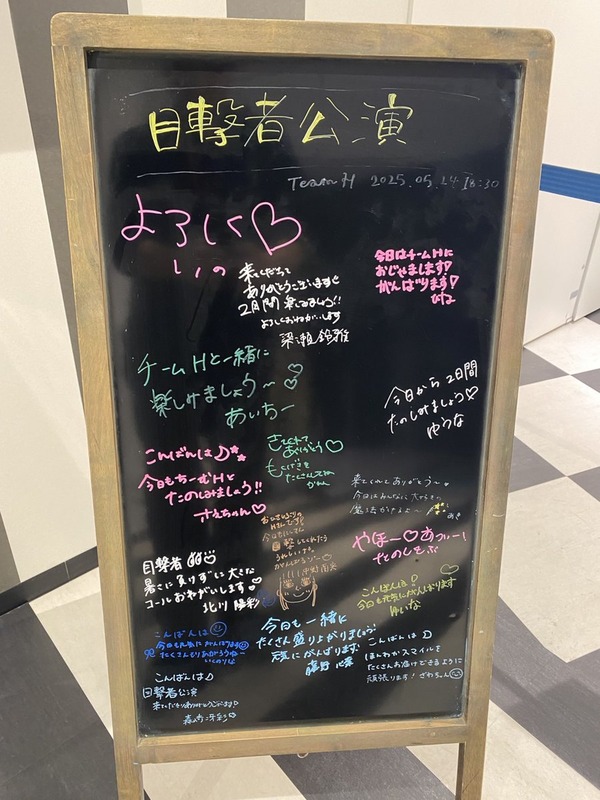 目撃者公演
Team H 2025.05.24 18:30
よろしく♡
しの
来てくださって
ありがとうございます
2日間 楽しみましょう!!
よろしくおねがいします
梁瀬 鈴雅
今日はチームHに
おじゃまします!
がんばります!
ひな
チームHと一緒に
楽しみましょう〜
あいちー
今日から2日間
たのしみましょう♡
ゆうな
こんばんは♪
今日もちーむHと
たのしみましょう!!
さえちゃん♡
きてくれて
ありがとう♡
もくげきを
たくさんしてね
来てくれてありがとう〜
今日はみんなに大好きの
魔法かけるよ〜
あき
おひさしぶりの
してくれたら
うれしいな。
やほー♡あつー!
たのしもぶ
目撃者
暑さに負けずに大きな♡
コールおねがいします!
北川 陽彩
こんばんは!
今日も元気にがんばります
こんばんは
今日も元気にがんばります
たくさんもりあがろうね〜
今日も一緒に
たくさん盛り上がりましょう!
元気にがんばります
藤野 心葉
こんばんは♪
ほんわかスマイルを
たくさんお届けできるように
頑張ります! ざわちゃん
こんばんは♪
目撃者公演
来てくださりありがとうございます!